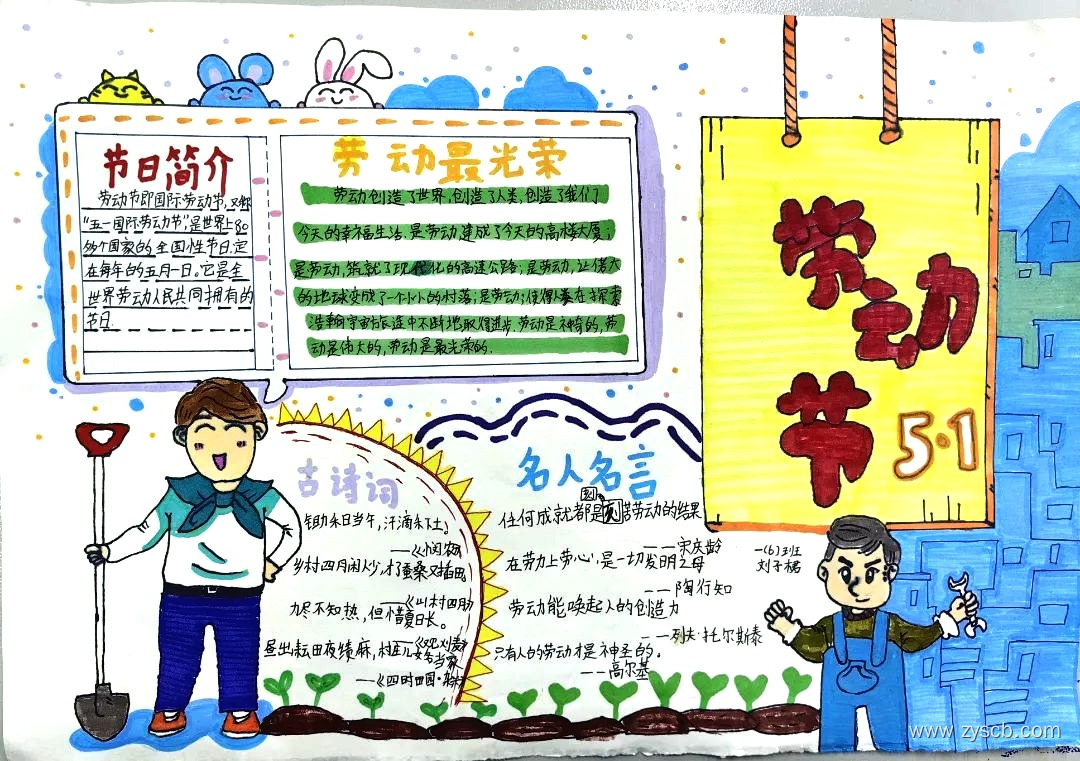 节日简介
劳动节即国际劳动节,又称
“五一国际劳动节”,是世界上80
多个国家的全国性节日.定
在每年的五月一日。它是全
世界劳动人民共同拥有的
节日.
劳动最光荣
劳动创造了世界,创造了人类,创造了我们
今天的幸福生活.是劳动建成了今天的高楼大厦;
是劳动,筑就了现代化的高速公路;是劳动,让偌大
的地球变成了一个小小的村落;是劳动,使得人类在探索
浩翰宇宙旅途中不断地取得进步.劳动是神奇的,劳
动是伟大的,劳动是最光荣的.
劳动
节
5·1
古诗词
锄禾日当午,汗滴禾下土。
——《悯农》
乡村四月闲人少,才了蚕桑又插田。
——《山村四月》
力尽不知热,但惜夏日长。
——《观刈麦》
昼出耘田夜绩麻,村庄儿女各当家
——《四时田园·杂兴
名人名言
任何成就都是刻苦劳动的结果
——宋庆龄
在劳力上劳心,是一切发明之母
——陶行知
劳动能唤起人的创造力
——列夫·托尔斯泰
只有人的劳动才是神圣的。
——高尔基
一(6)班
刘子
www.zyscb.com